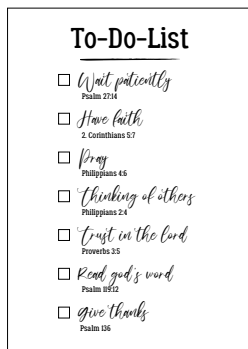 To-Do-List
Wait patiently
Psalm 27:14
Have faith
2. Corinthians 5:7
Pray
Philippians 4:6
Thinking of others
Philippians 2:4
Trust in the lord
Proverbs 3:5
Read god's word
Psalm 119:12
Give thanks
Psalm 136